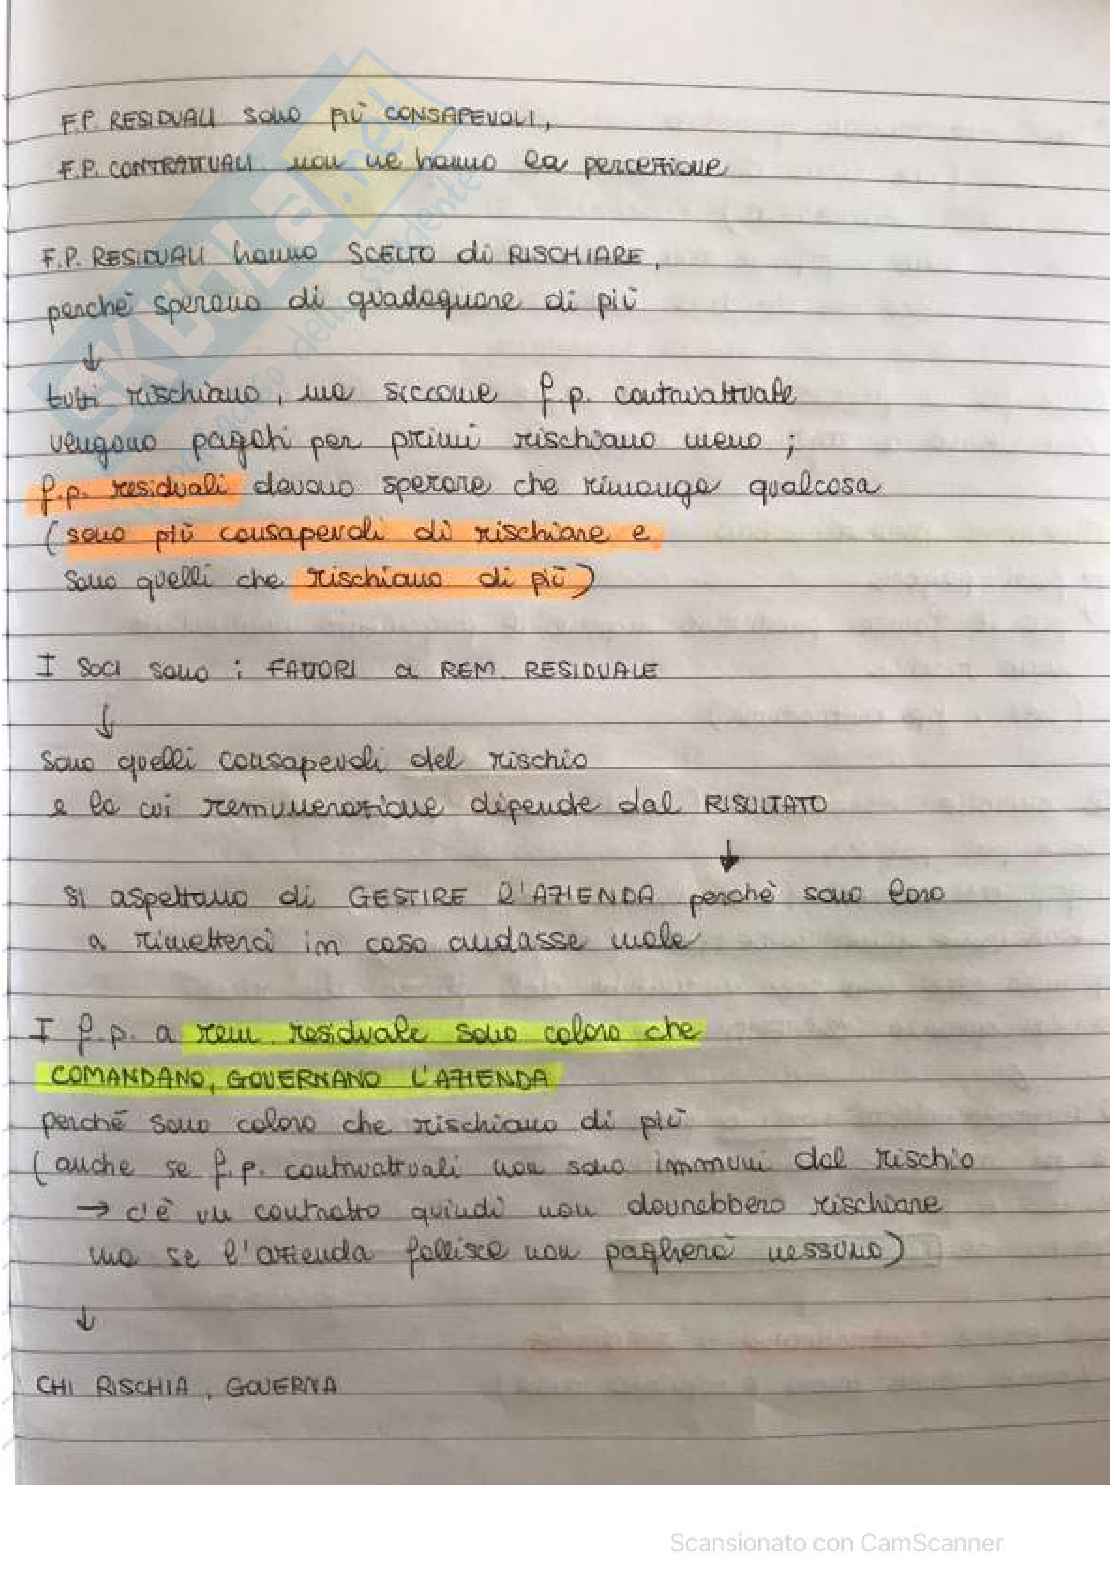 F.P. RESIDUALI sono più CONSAPEVOLI,
F.P. CONTRATTUALI non ne hanno la percezione
F.P. RESIDUALI hanno SCELTO di RISCHIARE,
perchè sperano di guadagnare di più
↓
tutti rischiano, ma siccome f.p. contrattuale
vengono pagati per primi rischiano meno;
f.p. residuali devono sperare che rimanga qualcosa
(sono più consapevoli di rischiare e
sono quelli che rischiano di più)
I SOCI sono i FATTORI a REM. RESIDUALE
↓
sono quelli consapevoli del rischio
e la cui remunerazione dipende dal RISULTATO
↓
si aspettano di GESTIRE l'AZIENDA perchè sono loro
a rimetterci in caso andasse male
I f.p. a rem. residuale sono coloro che
COMANDANO, GOVERNANO L'AZIENDA
perchè sono coloro che rischiano di più
(anche se f.p. contrattuali non sono immuni dal rischio
→ c'è un contratto quindi non dovrebbero rischiare
ma se l'azienda fallisce non pagherà nessuno)
↓
CHI RISCHIA, GOVERNA
SKUOLA.net
Scansionato con CamScanner